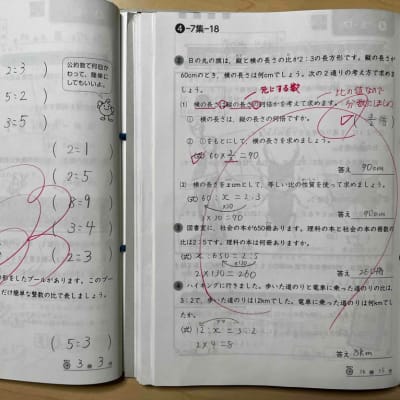 2=3 )
5=2 )
3=5 )
( 2=1 )
( 2=5 )
( 8=9 )
( 3=4 )
( 2=3 )
公約数で何回か
わって、簡単に
してもいいよ。
形をしたプールがあります。このプー
だけ簡単な整数の比で表しましょう。
( 5=3 )
❹-7集-18
② 日の丸の旗は、縦と横の長さの比が2:3の長方形です。縦の長さが
60cmのとき、横の長さは何cmでしょう。次の2通りの考え方で求めましょう。
元にする数
(1) 横の長さは縦の長さの何倍かを考えて求めます。
比の値なので
① 横の長さは、縦の長さの何倍ですか。
( 3/2 倍 )
② ①をもとにして、横の長さを求めましょう。
(式) 60×3/2=90
答え 90cm
(2) 横の長さをxcmとして、等しい比の性質を使って求めましょう。
(式) 60:x=2:3
×30
3×30=90
答え 90cm
③ 図書室に、社会の本が650冊あります。理科の本と社会の本の冊数の
比は2:5です。理科の本は何冊ありますか。
(式) x:650=2:5
2×130=260
答え 260冊
④ ハイキングに行きました。歩いた道のりと電車に乗った道のりの比は、
3:2で、歩いた道のりは12kmでした。電車に乗った道のりは何kmでし
たか。
(式) 12:x=3:2
2×4=8
答え 8km